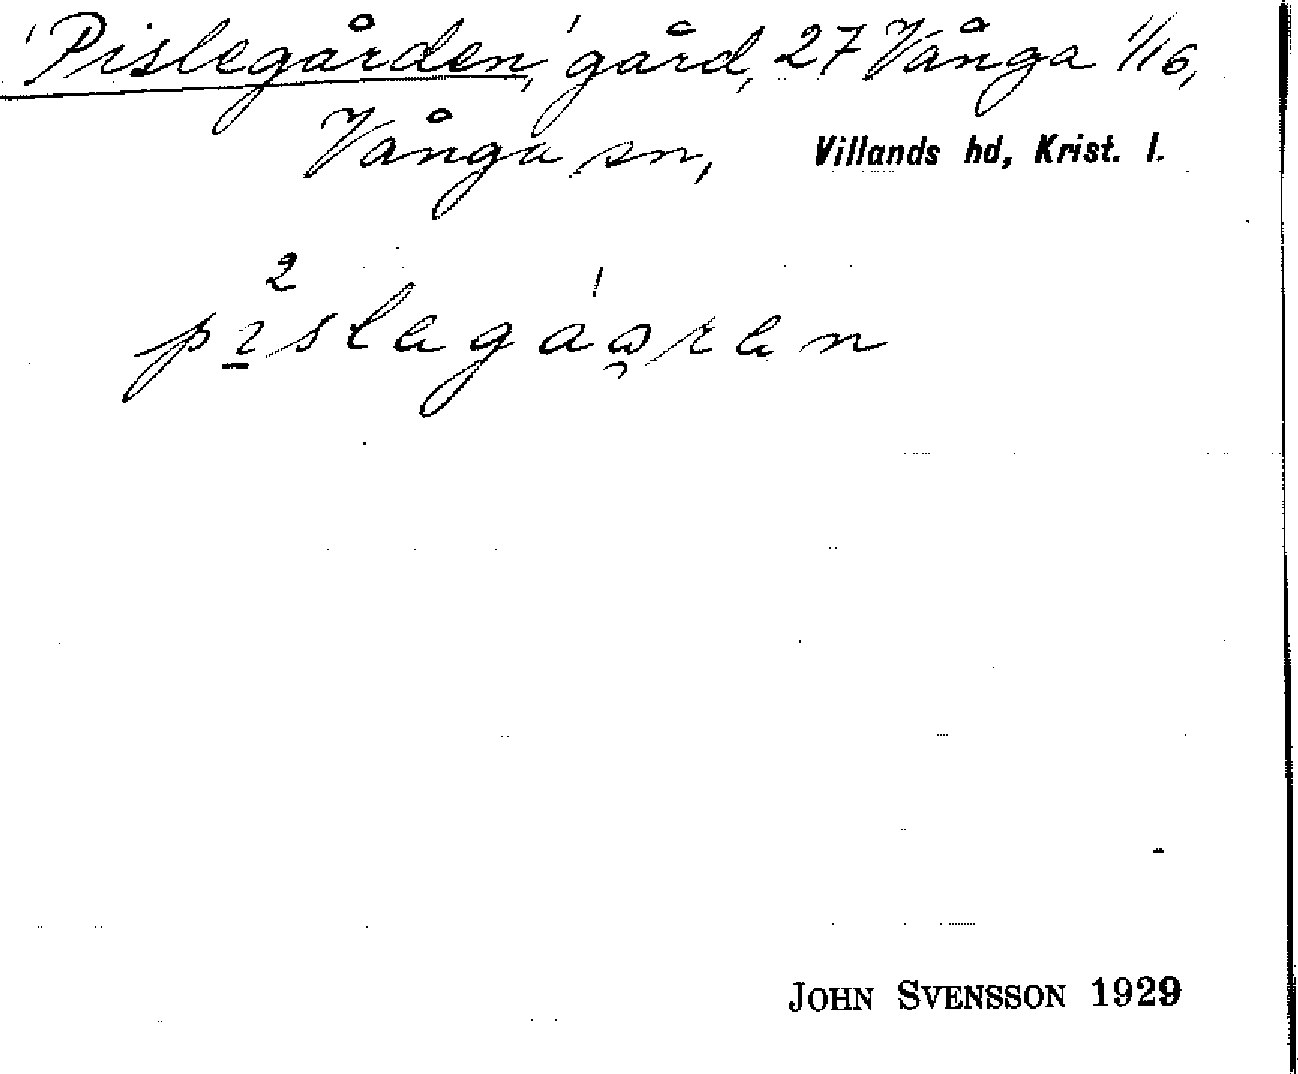 'Pislegården,' gård, 27 Vånga 1/16,
Vånga sn, Villands hd, Krist. l.
2
pıslagáǫran
JOHN SVENSSON 1929